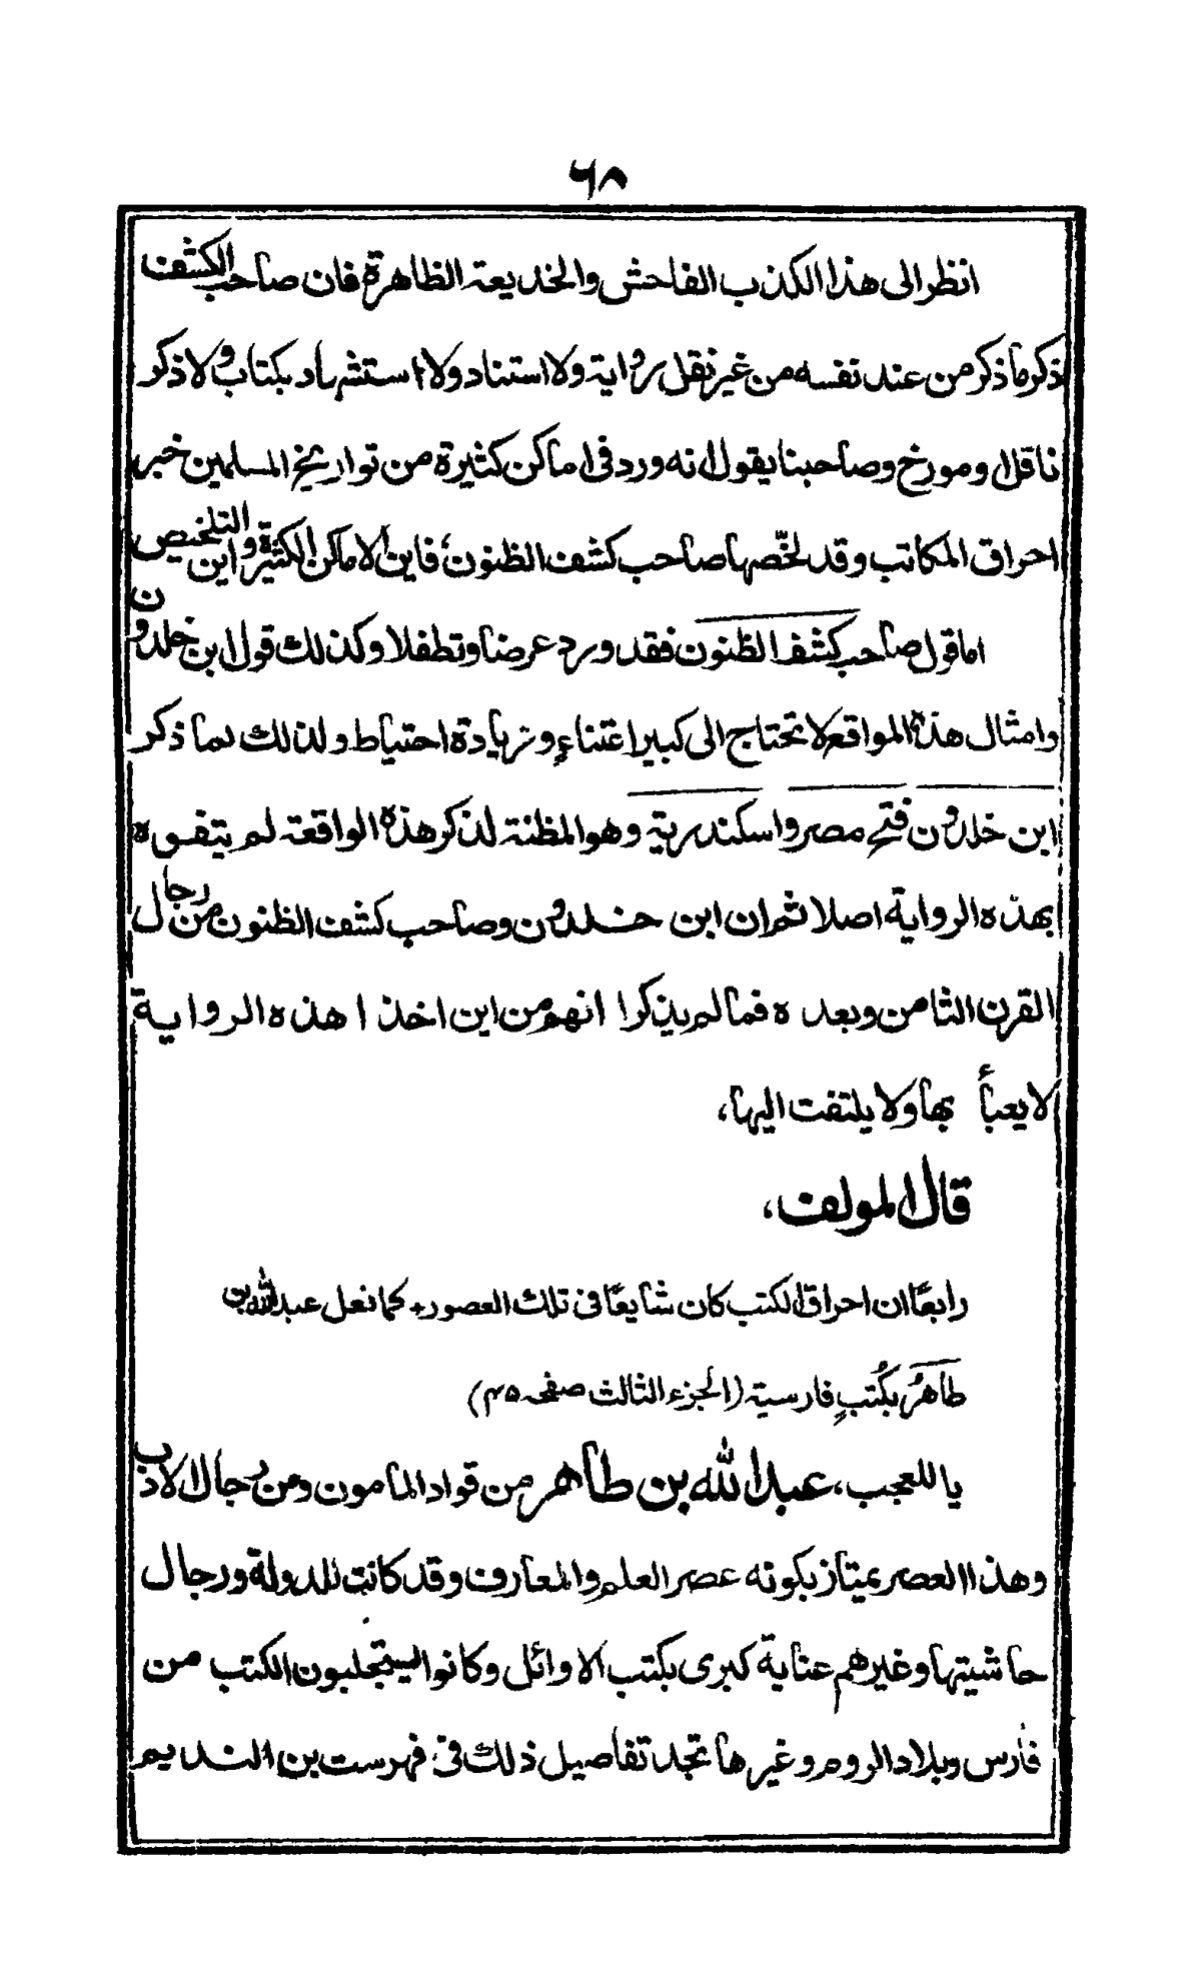 ٦٨
انظر الى هذا الكذب الفاحش والخديعة الظاهرة فان صاحب الكشف
ذكر ما ذكر من عند نفسه من غير نقل رواية ولا استناد ولا استشهاد بكتاب ولا ذكر
ناقل ومورخ وصاحبنا يقول انه ورد في اماكن كثيرة من تواريخ المسلمين خبر
احراق المكاتب وقد لخّصها صاحب كشف الظنون، فاين الاماكن الكثيرة واين التلخيص
اما قول صاحب كشف الظنون فقد ورد عرضا وتطفلا وكذلك قول ابن خلدون
وامثال هذه المواقع لا تحتاج الى كبير اعتناءٍ وزيادة احتياط ولذلك لما ذكر
ابن خلدون فتح مصر واسكندرية وهو المظنة لذكر هذه الواقعة لم يتفوه
بهذه الرواية اصلا ثم ان ابن خلدون وصاحب كشف الظنون من رجال
القرن الثامن وبعده فما لم يذكرا انهم من اين اخذا هذه الرواية
لا يعبأ بها ولا يلتفت اليها،
قال المولف،
رابعًا ان احراق الكتب كان شايعًا في تلك العصور+ كما فعل عبدالله بن
طاهرُ بكُتبٍ فارسية (الجزء الثالث صفحه ٤٥)
يا للعجب، عبدالله بن طاهر من قواد المامون ومن رجال الادب
وهذا العصر يمتاز بكونه عصر العلم والمعارف وقد كانت للدولة ورجال
حاشيتها وغيرهم عناية كبرى بكتب الاوائل وكانوا يستجلبون الكتب من
فارس وبلاد الروم وغيرها تجد تفاصيل ذلك في فهرست بن النديم